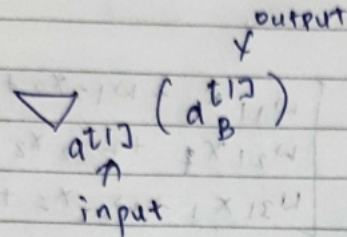 output
▽ a[1] (a[1] B)
a[1]
input